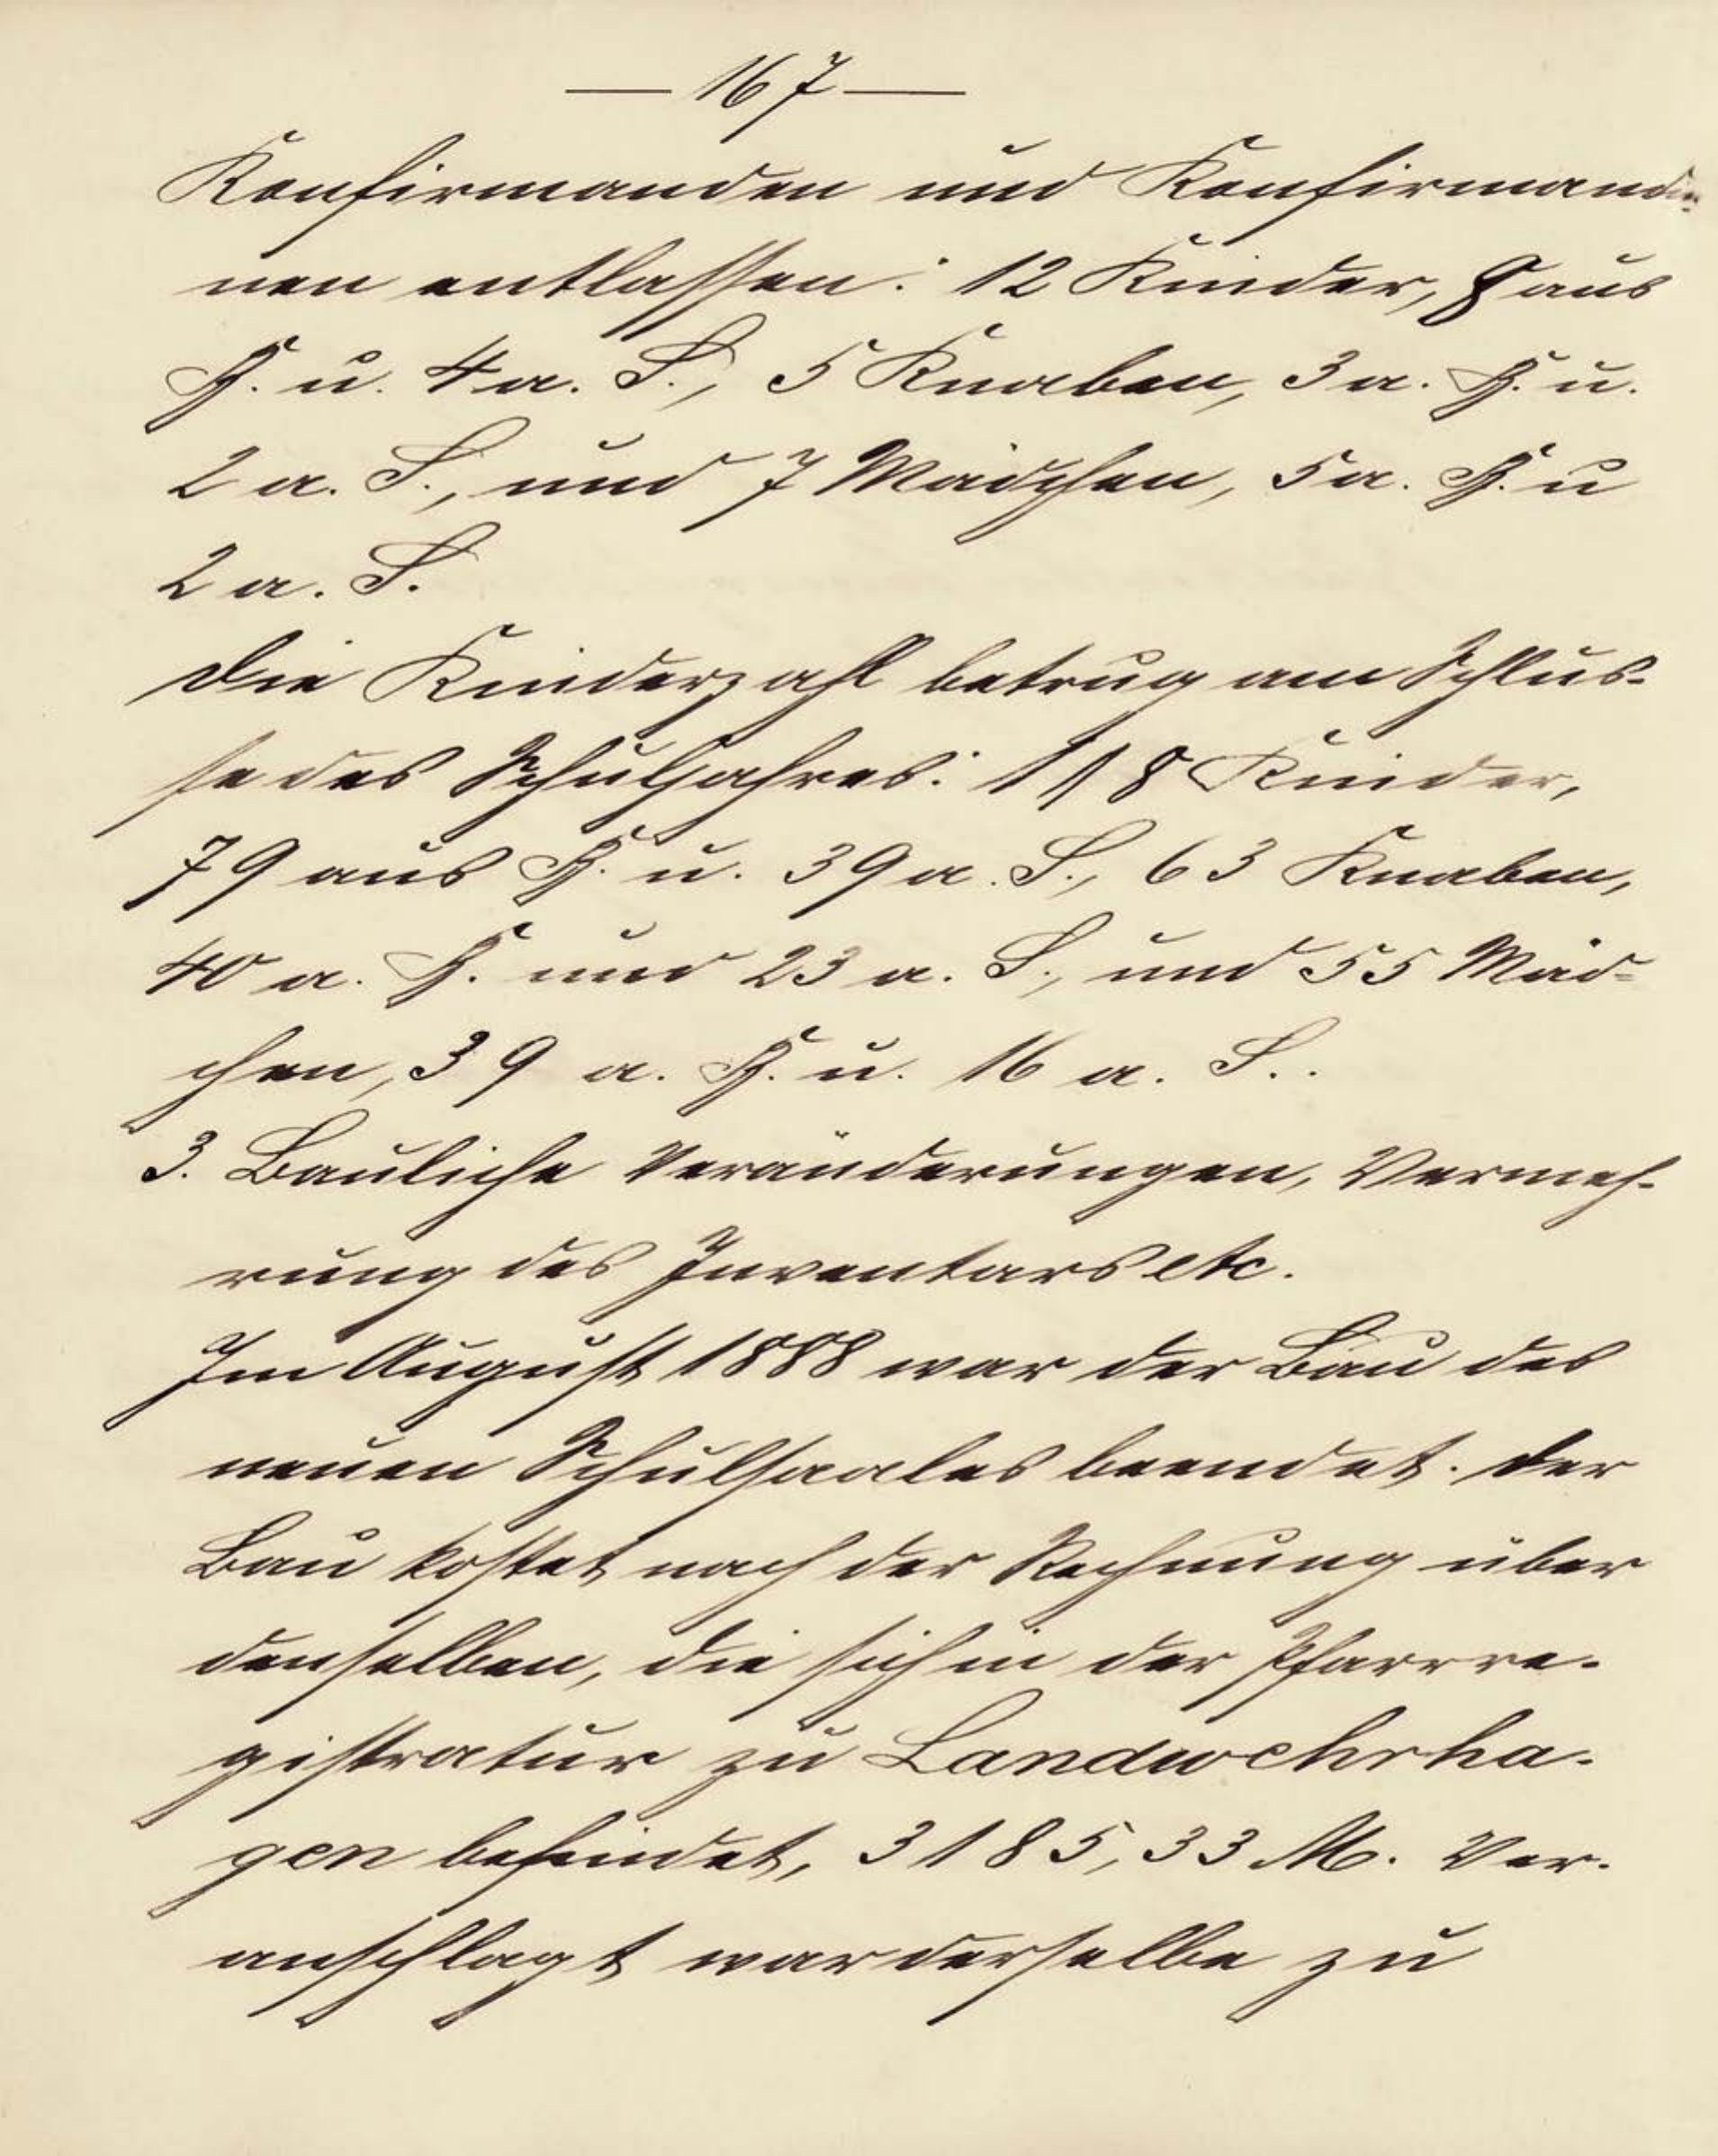 — 167 —
Konfirmanden und Konfirmandin-
nen entlassen: 12 Kinder, 8 aus
B. u. 4 a. S., 5 Knaben, 3 a. B. u.
2 a. S., und 7 Mädchen, 5 a. B. u
2 a. S.
Die Kinderzahl betrug am Schlus-
se des Schuljahres: 118 Kinder,
79 aus B. u. 39 a. S., 63 Knaben,
40 a. B. und 23 a. S., und 55 Mäd-
chen, 39 a. B. u. 16 a. S..
3. Bauliche Veränderungen, Vermeh-
rung des Inventars etc.
Im August 1888 war der Bau des
neuen Schulsaales beendet. Der
Bau kostet nach der Rechnung über
denselben, die sich in der Pfarrre-
gistratur zu Landwehrha-
gen befindet, 3185,33 M. Ver-
anschlagt war derselbe zu